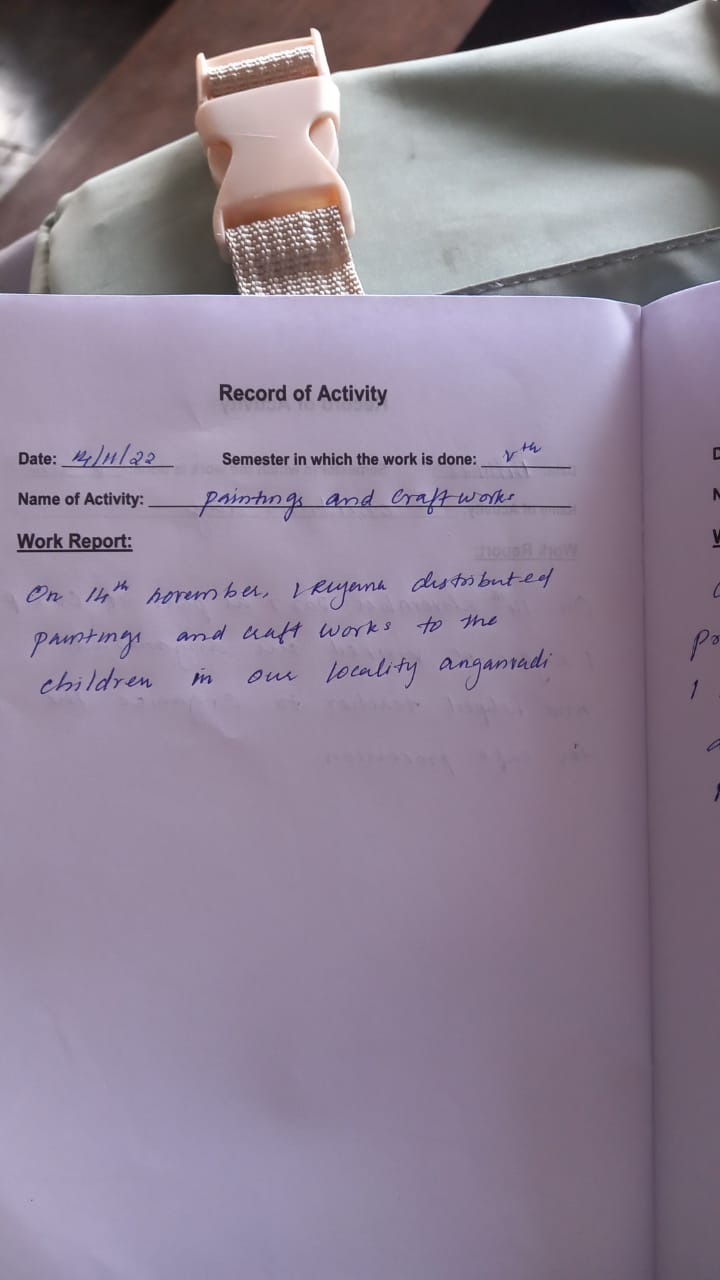 Record of Activity
Date: 14/11/22 Semester in which the work is done: Vth
Name of Activity: Paintings and Craft works
Work Report:
On 14th november, I distributed
paintings and craft works to the
children in our locality anganvadi